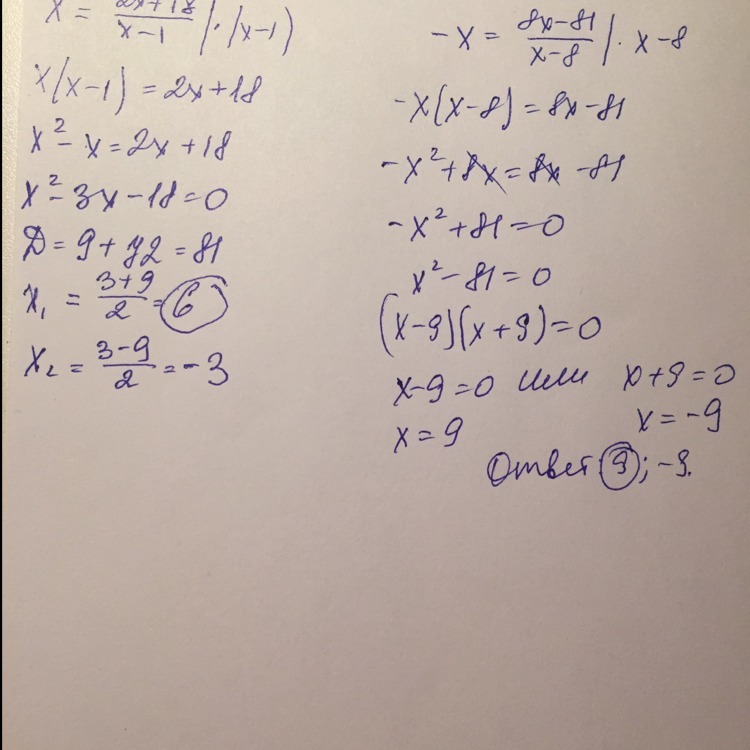 x = (2x+18)/(x-1) | · (x-1)
x(x-1) = 2x+18
x² - x = 2x + 18
x² - 3x - 18 = 0
D = 9 + 72 = 81
x₁ = (3+9)/2 = 6
x₂ = (3-9)/2 = -3
-x = (8x-81)/(x-8) | · x-8
-x(x-8) = 8x-81
-x² + 8x = 8x - 81
-x² + 81 = 0
x² - 81 = 0
(x-9)(x+9) = 0
x-9=0 или x+9=0
x = 9 x = -9
Ответ 9; -9.